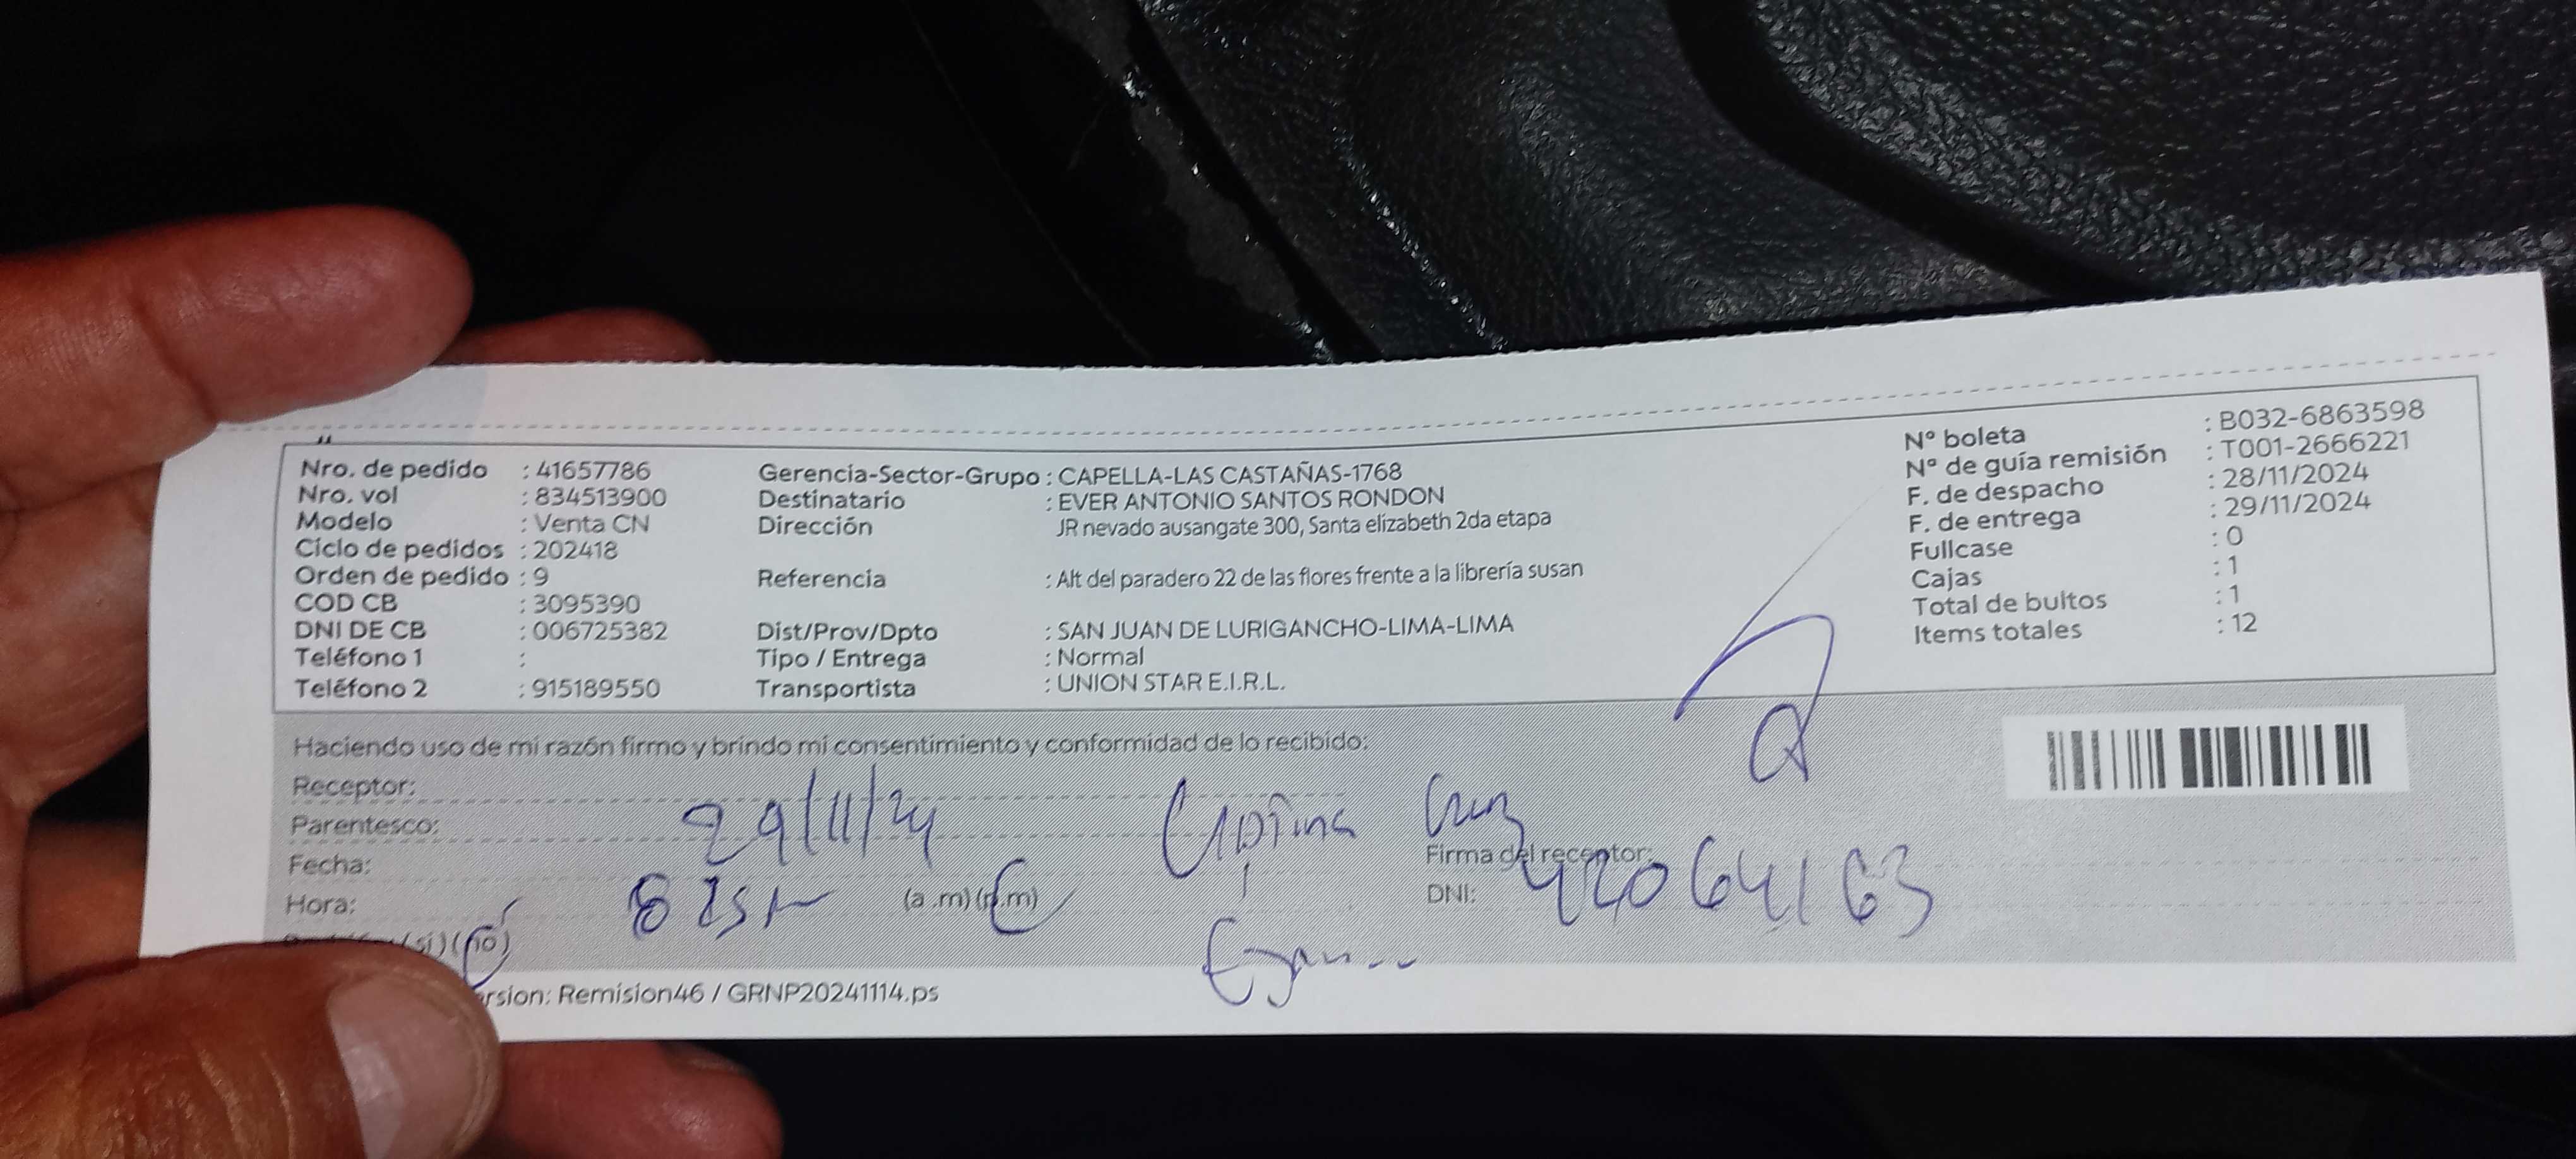 Nro. de pedido : 41657786
Nro. vol : 834513900
Modelo : Venta CN
Ciclo de pedidos : 202418
Orden de pedido : 9
COD CB : 3095390
DNI DE CB : 006725382
Teléfono 1 :
Teléfono 2 : 915189550
Gerencia-Sector-Grupo : CAPELLA-LAS CASTAÑAS-1768
Destinatario : EVER ANTONIO SANTOS RONDON
Dirección JR nevado ausangate 300, Santa elizabeth 2da etapa
Referencia : Alt del paradero 22 de las flores frente a la librería susan
Dist/Prov/Dpto : SAN JUAN DE LURIGANCHO-LIMA-LIMA
Tipo / Entrega : Normal
Transportista : UNION STAR E.I.R.L.
N° boleta : B032-6863598
N° de guía remisión : T001-2666221
F. de despacho : 28/11/2024
F. de entrega : 29/11/2024
Fullcase : 0
Cajas : 1
Total de bultos : 1
Items totales : 12
Haciendo uso de mi razón firmo y brindo mi consentimiento y conformidad de lo recibido:
Receptor:
Parentesco: 29/11/24
Fecha:
Hora: (a.m)(p.m)
(si)(no)
Firma del receptor:
DNI: 42064163
rsion: Remision46 / GRNP20241114.ps